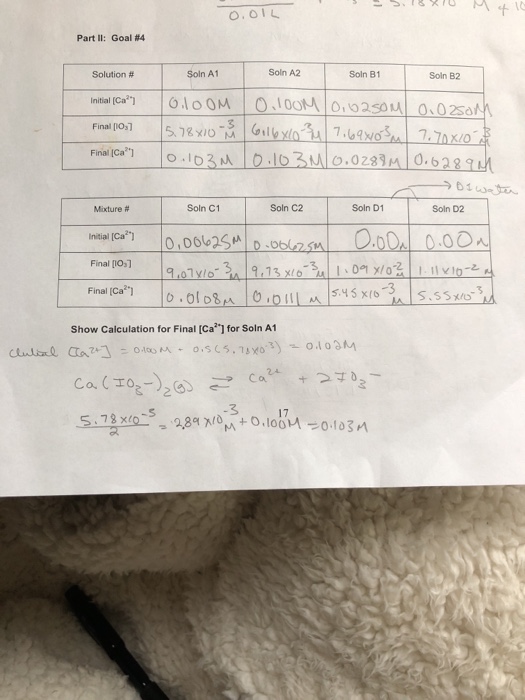 0.01L
Part II: Goal #4
Solution # Soln A1 Soln A2 Soln B1 Soln B2
Initial [Ca²⁺] 0.100M 0.100M 0.0250M 0.0250M
Final [IO₃⁻] 5.78x10⁻³ M 6.16x10⁻³ M 7.69x10⁻³ M 7.70x10⁻³ M
Final [Ca²⁺] 0.103M 0.103M 0.0289M 0.0289M
→ DI water
Mixture # Soln C1 Soln C2 Soln D1 Soln D2
Initial [Ca²⁺] 0.00625M 0.00625M 0.00M 0.00M
Final [IO₃⁻] 9.07x10⁻³ M 9.73x10⁻³ M 1.09x10⁻² 1.11x10⁻² M
Final [Ca²⁺] 0.0108M 0.0111 M 5.45x10⁻³ M 5.55x10⁻³ M
Show Calculation for Final [Ca²⁺] for Soln A1
[Ca²⁺] = 0.100M - 0.5(5.78x10⁻³) = 0.103M
Ca(IO₃⁻)₂(s) ⇌ Ca²⁺ + 2IO₃⁻
17
5.78x10⁻³/2 = 2.89x10⁻³ M + 0.100M = 0.103M